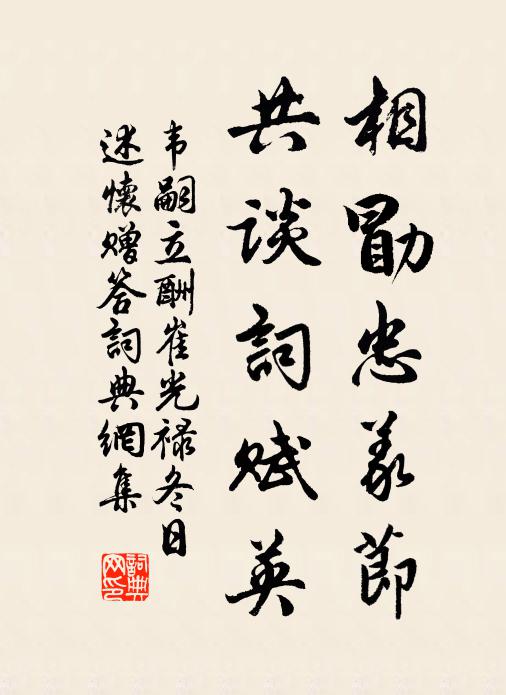 相勖忠义节
共谈詞赋英
韦嗣立酬崔光禄冬日
述懷赠答詞典網集
詞典
网印